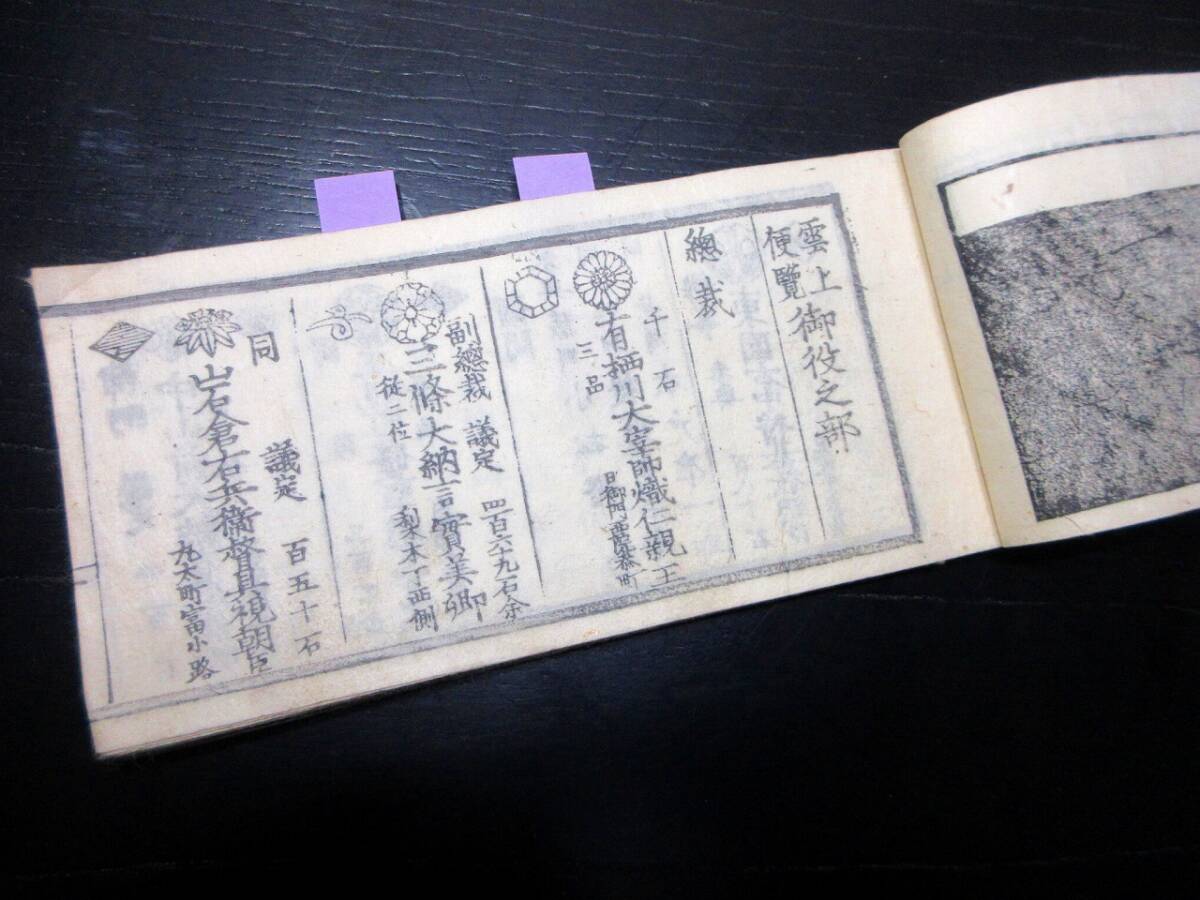 雲上
便覽
御役之部
總裁
千石
三品
有栖川大宰帥熾仁親王
副總裁 議定
四百六十九石余
三條大納言實美卿
從二位
梨木丁西側
同
議定
百五十石
岩倉右兵衛督具視朝臣
丸太町富小路